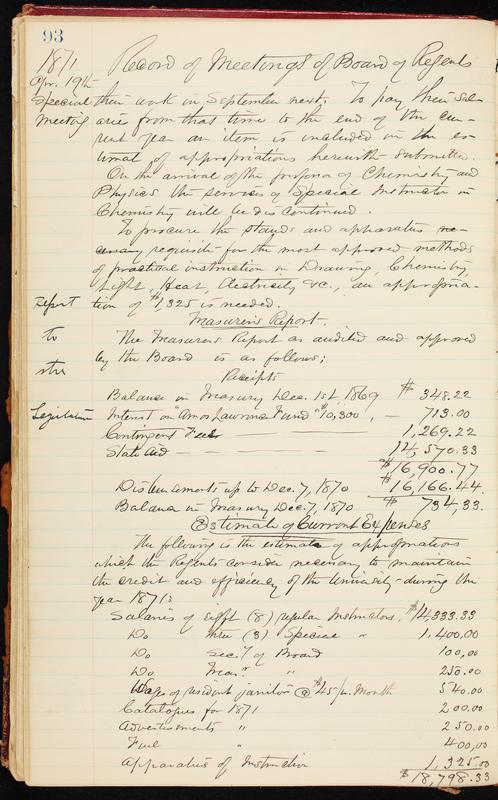 93
1871 Record of Meetings of Board of Regents
Apr. 19th
Special their work in September next. To pay their sal-
Meeting aries from that time to the end of the cur-
rent year an item is included in the es-
timat of appropriations herewith submitted.
On the arrival of the professor of Chemistry and
Physics the services of Special Instructor in
Chemistry will be discontinued.
To procure the stands and apparatus ne-
cessary requisite for the most approved methods
of practical instruction in Drawing, Chemistry,
Light, Heat, Electricity &c., an appropria-
Report tion of $1,325 is needed.
Treasurer's Report.
to The Treasurers Report as audited and approved
by this Board is as follows;
the Receipts
Balance in Treasury Dec. 1st, 1869 $ 348.22
Legislature Interest on "Amos Lawrence Fund" $10,300, — 713.00
Contingent Fees — 1,269.22
State Aid — — — — 14,570.33
$16,900.77
Disbursements up to Dec. 7, 1870 $16,166.44
Balance in Treasury Dec. 7, 1870 $ 734,33.
Estimate of Current Expenses
The following is the estimate of appropriations
which the Regents consider necessary to maintain
the credit and efficiency of the University during the
year 1871:
Salaries of eight (8) regular Instructors, $14,333.33
Do three (3) Special " 1,400,00
Do Sec'y of Board 100,00
Do Treas. " 250.00
Wages of resident janitor @ $45 pr. Month 540.00
Catalogues for 1871 200.00
Advertisements " 250.00
Fuel " 400,00
Apparatus of Instruction 1,325.00
$18,798.33